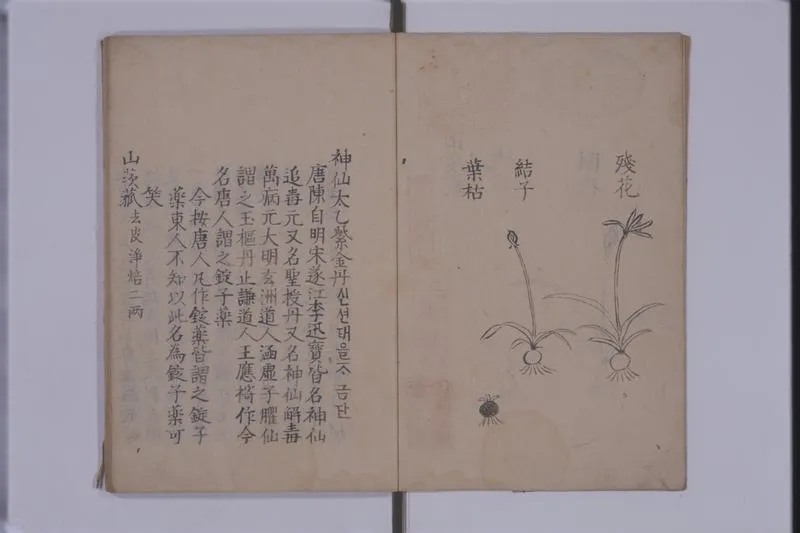 殘花
結子
葉枯
神仙太乙紫金丹신션태을ᄌᆞ금단
唐陳自明宋遂江李迅寶皆名神仙
追毒元又名聖授丹又名神仙解毒
萬病元大明玄洲道人涵虛子臞仙
謂之玉樞丹止謙道人王應椅作今
名唐人謂之錠子藥
今按唐人凡作錠藥皆謂之錠子
藥東人不知以此名為錠子藥可
笑
山茨菰去皮淨焙二兩